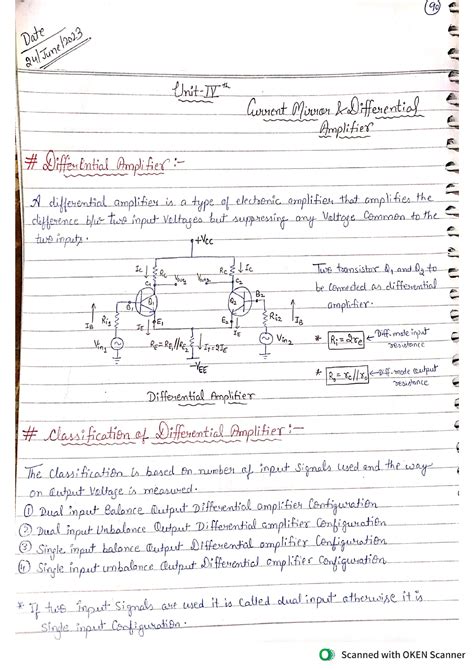 90
Date
24/June/2023
Unit-IVth
Current Mirror & Differential
Amplifier
# Differential Amplifier :-
A differential amplifier is a type of electronic amplifier that amplifies the
difference b/w two input voltages but suppressing any voltage common to the
two inputs.
+Vcc
IC RC RC IC
C1 Vout1 Vout2 C2
Two transistor Q1 and Q2 to
be connected as differential
amplifier.
B1 Q1 Q2 B2
Ri1 E1 E2 Ri2
IB IE IE IB
Vin1 RE=RE1//RE2 IT=2IE Vin2
-VEE
* Ri=2re ← Diff. mode input
resistance
* Ro=rc//ro ← Diff. mode output
resistance
Differential Amplifier
# Classification of Differential Amplifier :-
The Classification is based on number of input Signals used and the way
an output Voltage is measured.
① Dual input Balance Output Differential amplifier Configuration
② Dual input Unbalance Output Differential amplifier Configuration
③ Single input balance Output Differential amplifier Configuration
④ Single input unbalance Output Differential amplifier Configuration
* If two input Signals are used it is called dual input otherwise it is
Single input Configuration.
Scanned with OKEN Scanner